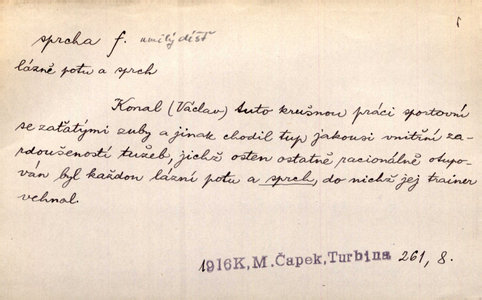 sprcha f. umělý déšť
lázně potu a sprch
Konal (Václav) tuto krušnou práci sportovní
se zaťatými zuby a jinak chodil tup jakousi vnitřní za-
rdoušeností tužeb, jichž osten ostatně racionálně otupo-
ván byl každou lázní potu a sprch, do nichž jej trainer
vehnal.
1916K, M. Čapek, Turbina 261, 8.